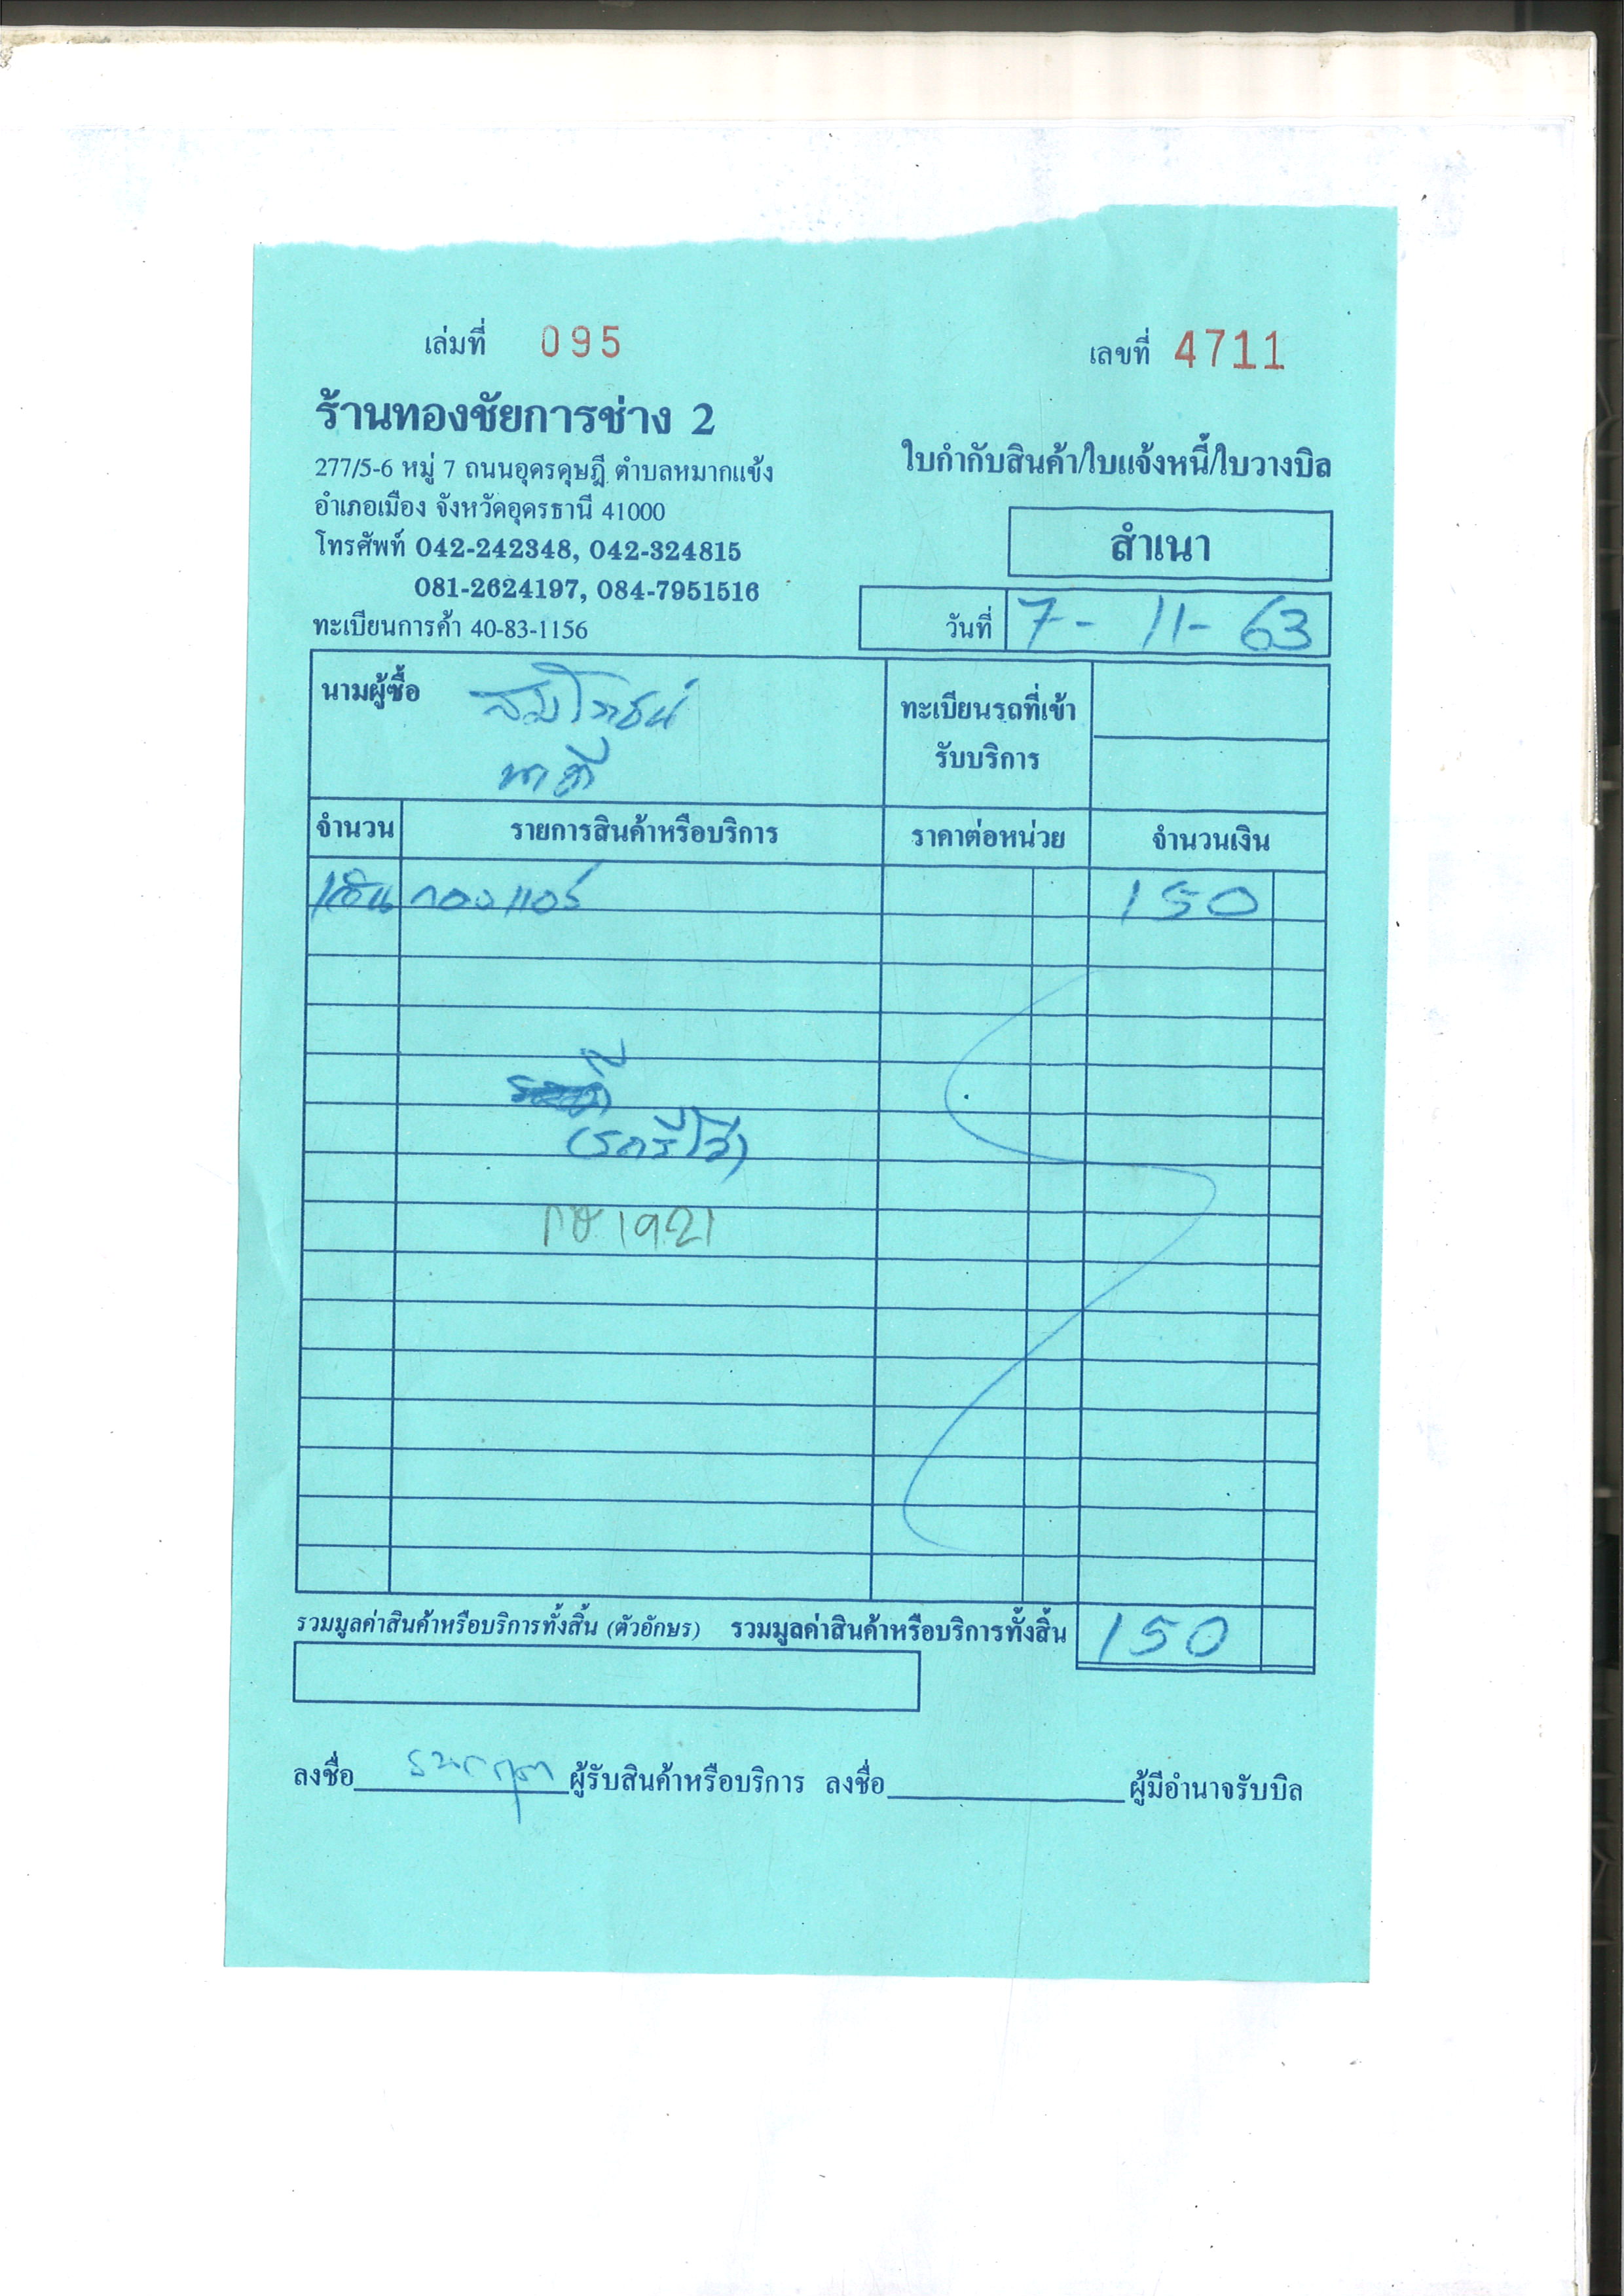 เล่มที่ 095
เลขที่ 4711
ร้านทองชัยการช่าง 2
277/5-6 หมู่ 7 ถนนอุดรดุษฎี ตำบลหมากแข้ง
อำเภอเมือง จังหวัดอุดรธานี 41000
โทรศัพท์ 042-242348, 042-324815
081-2624197, 084-7951516
ทะเบียนการค้า 40-83-1156
ใบกำกับสินค้า/ใบแจ้งหนี้/ใบวางบิล
สำเนา
วันที่ 7- 11- 63
นามผู้ซื้อ
ทะเบียนรถที่เข้า
รับบริการ
จำนวน รายการสินค้าหรือบริการ ราคาต่อหน่วย จำนวนเงิน
กองแอร์ 150
1921
รวมมูลค่าสินค้าหรือบริการทั้งสิ้น (ตัวอักษร) รวมมูลค่าสินค้าหรือบริการทั้งสิ้น 150
ลงชื่อ ผู้รับสินค้าหรือบริการ ลงชื่อ ผู้มีอำนาจรับบิล